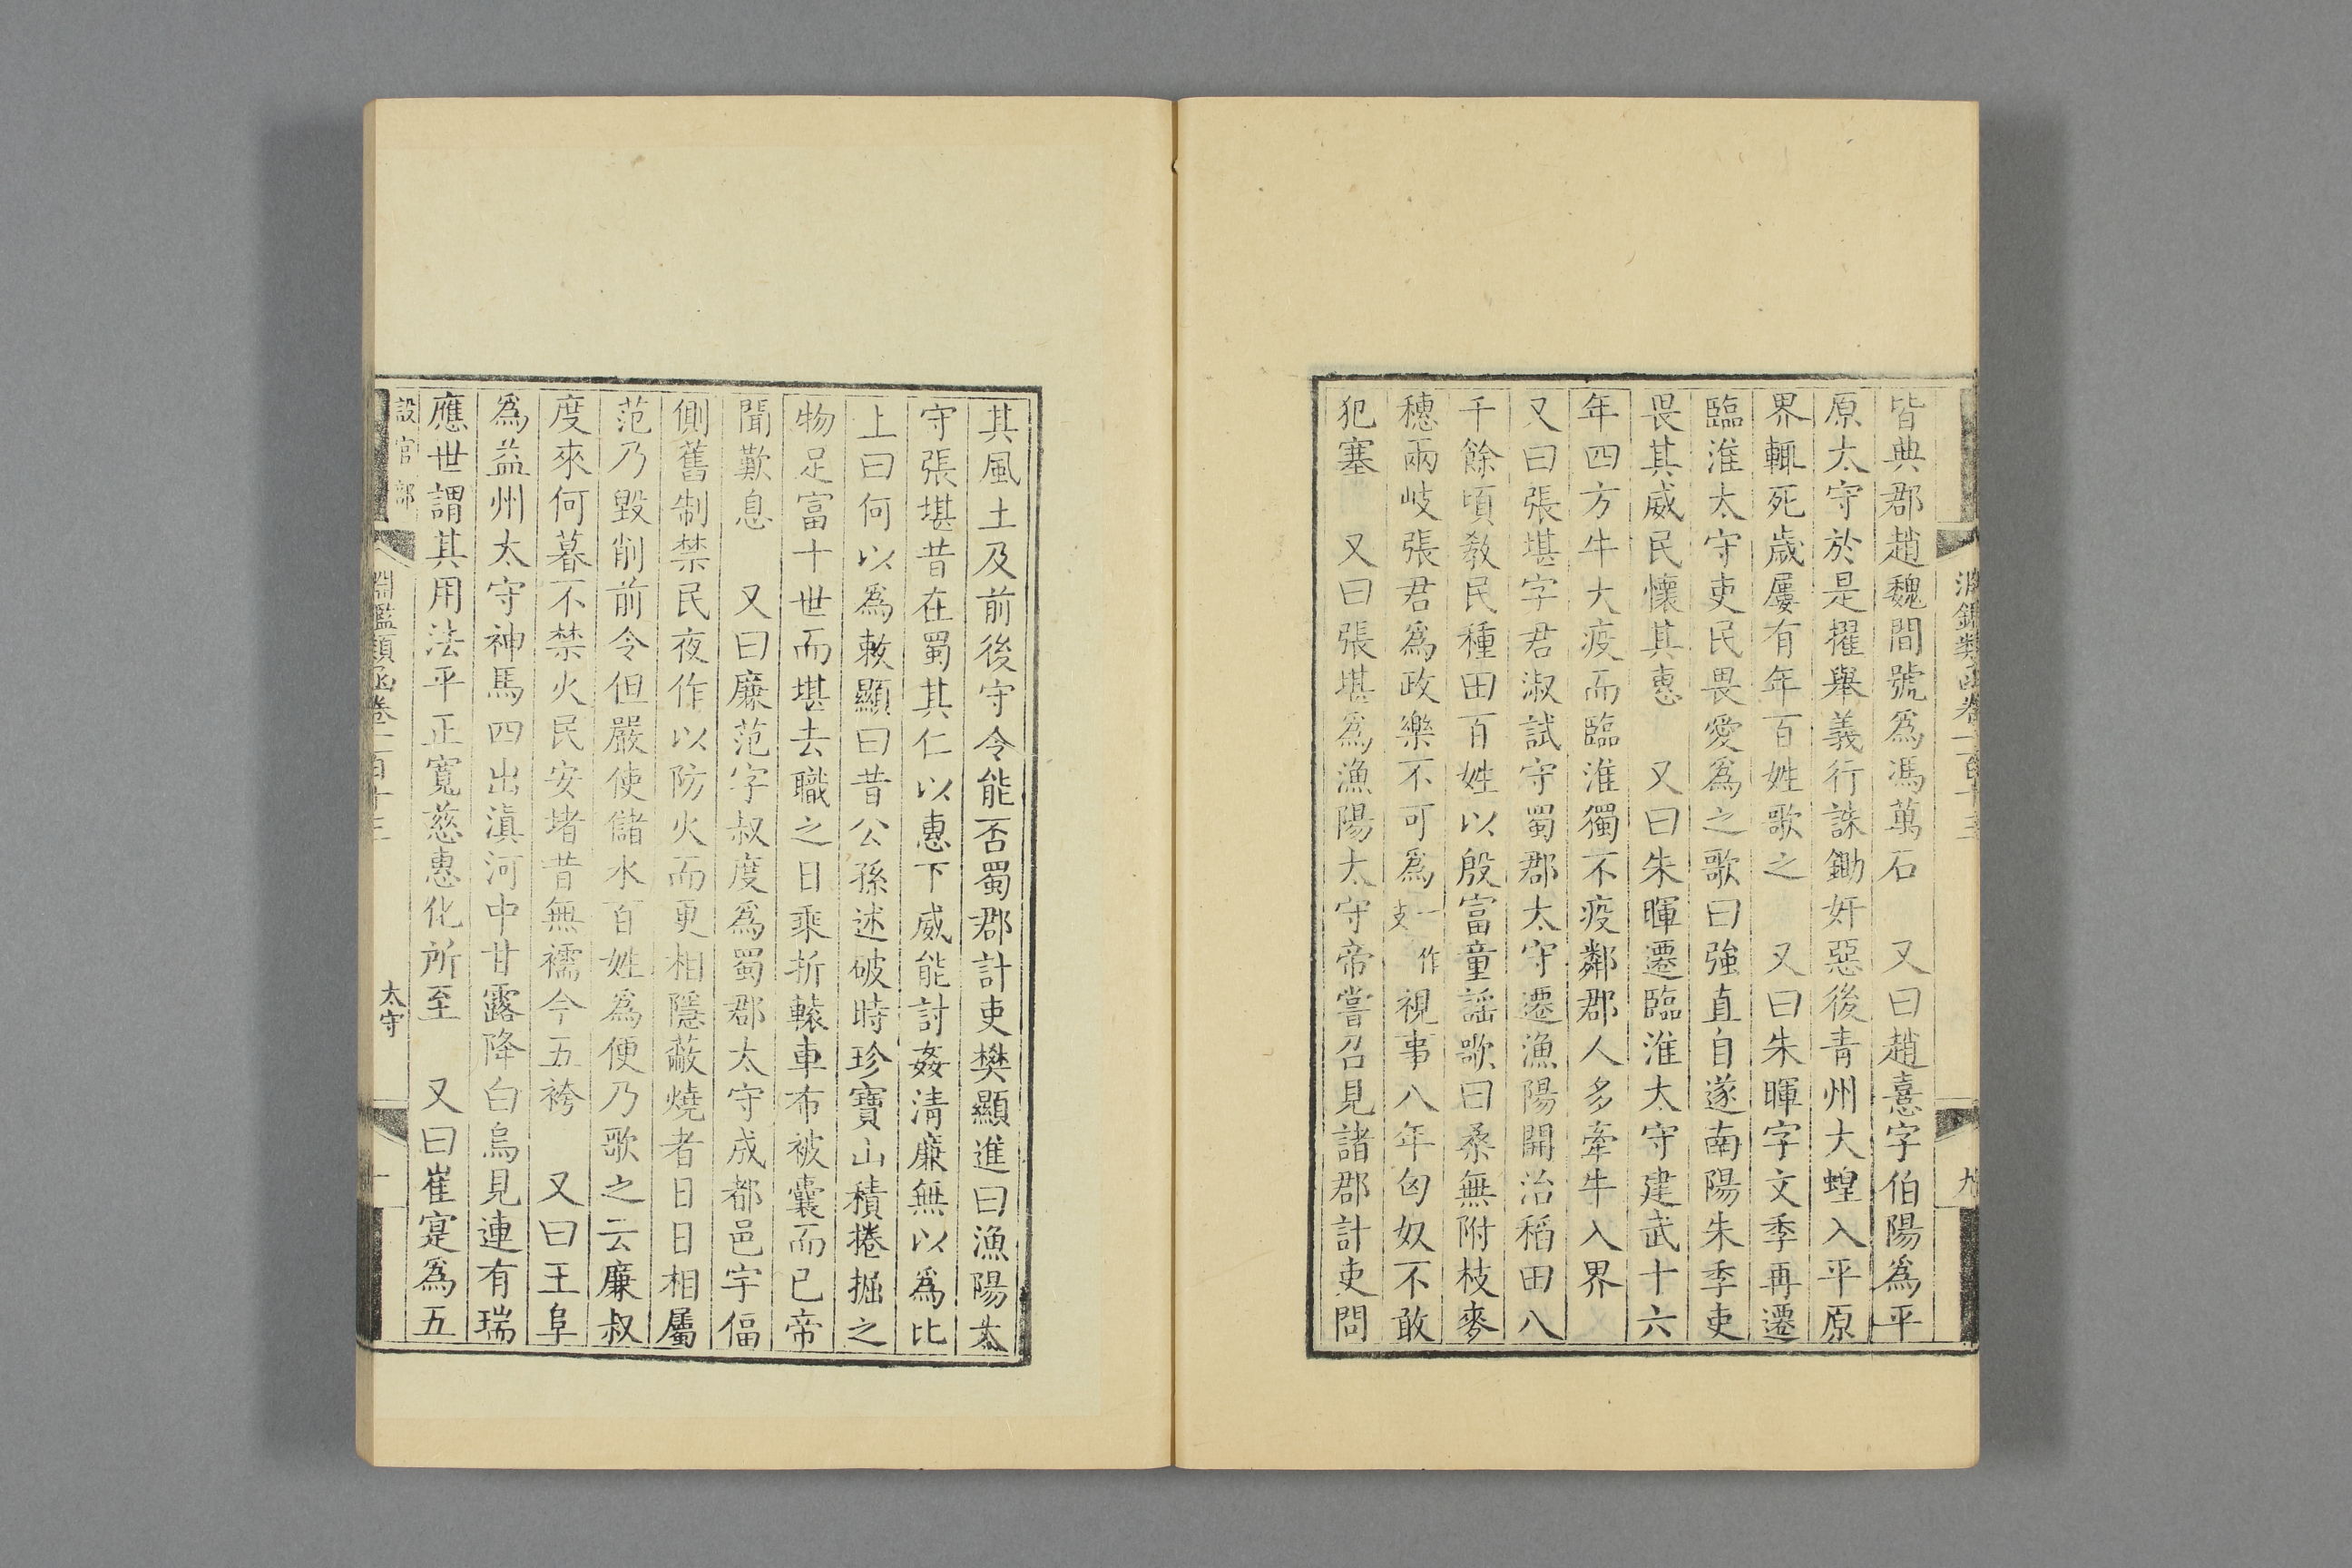 淵鑑類函卷一百十三
九
皆典郡趙魏間號爲馮萬石　又曰趙憙字伯陽爲平
原太守於是擢舉義行誅鋤奸惡後青州大蝗入平原
界輒死歲屢有年百姓歌之　又曰朱暉字文季再遷
臨淮太守吏民畏愛爲之歌曰強直自遂南陽朱季吏
畏其威民懷其惠　又曰朱暉遷臨淮太守建武十六
年四方牛大疫而臨淮獨不疫鄰郡人多牽牛入界
又曰張堪字君淑試守蜀郡太守遷漁陽開治稻田八
千餘頃敎民種田百姓以殷富童謡歌曰桑無附枝麥
穗兩岐張君爲政樂不可爲一作支視事八年匈奴不敢
犯塞　又曰張堪爲漁陽太守帝嘗召見諸郡計吏問
其風土及前後守令能否蜀郡計吏樊顯進曰漁陽太
守張堪昔在蜀其仁以惠下威能討姦清廉無以爲比
上曰何以爲敕顯曰昔公孫述破時珍寶山積捲掘之
物足富十世而堪去職之日乘折轅車布被囊而已帝
聞歎息　又曰廉范字叔度爲蜀郡太守成都邑宇偪
側舊制禁民夜作以防火而更相隱蔽燒者日日相屬
范乃毀削前令但嚴使儲水百姓爲便乃歌之云廉叔
度來何暮不禁火民安堵昔無襦今五袴　又曰王阜
爲益州太守神馬四出滇河中甘露降白烏見連有瑞
應世謂其用法平正寬慈惠化所至　又曰崔寔爲五
設官部
淵鑑類函卷一百十三
太守
十